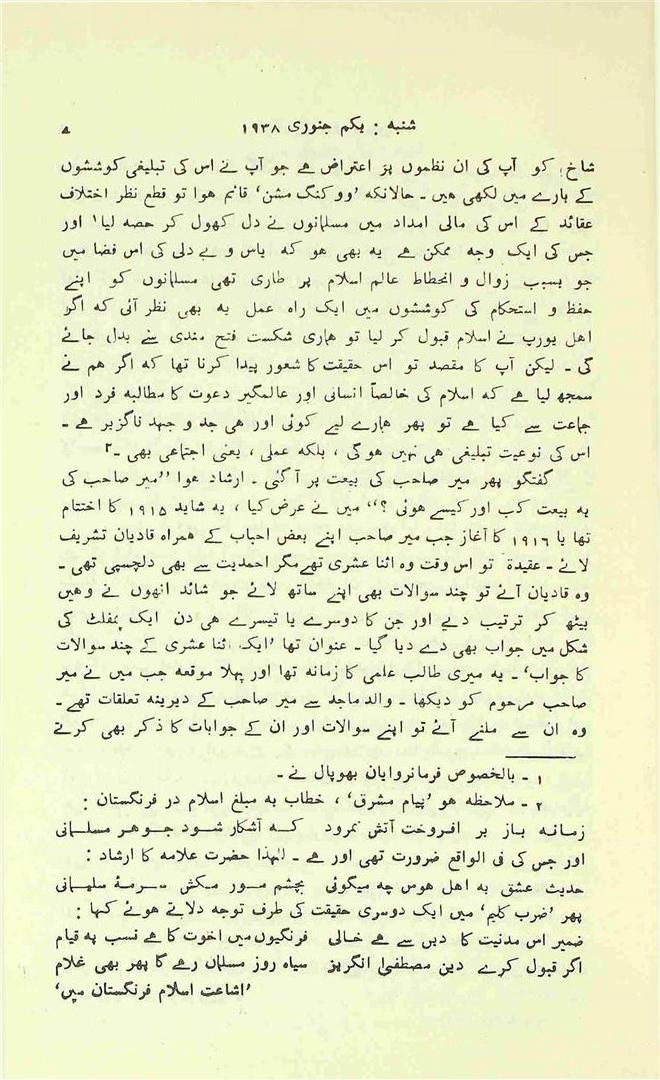 شنبہ : یکم جنوری ۱۹۳۸ ے
شاخ کو آپ کی ان نظموں پر اعتراض ہے جو آپ نے اس کی تبلیغی کوششوں
کے بارے میں لکھی ہیں ۔ حالانکہ ’ووکنگ مشن‘ قائم ہوا تو قطع نظر اختلاف
عقائد کے اس کی مالی امداد میں مسلمانوں نے دل کھول کر حصہ لیا۱ اور
جس کی ایک وجہ ممکن ہے یہ بھی ہو کہ یاس و بے دلی کی اس فضا میں
جو بسبب زوال و انحطاط عالم اسلام پر طاری تھی مسلمانوں کو اپنے
حفظ و استحکام کی کوششوں میں ایک راہ عمل یہ بھی نظر آئی کہ اگر
اہل یورپ نے اسلام قبول کر لیا تو ہماری شکست فتح مندی سے بدل جائے
گی ۔ لیکن آپ کا مقصد تو اس حقیقت کا شعور پیدا کرنا تھا کہ اگر ہم نے
سمجھ لیا ہے کہ اسلام کی خالصاً انسانی اور عالمگیر دعوت کا مطالبہ فرد اور
جماعت سے کیا ہے تو پھر ہمارے لیے کوئی اور ہی جد و جہد ناگزیر ہے ۔
اس کی نوعیت تبلیغی ہی نہیں ہوگی ، بلکہ عملی ، یعنی اجتماعی بھی ۔۲
گفتگو پھر میر صاحب کی بیعت پر آ گئی ۔ ارشاد ہوا ’’میر صاحب کی
یہ بیعت کب اور کیسے ہوئی ؟‘‘ میں نے عرض کیا ، یہ شاید ۱۹۱۵ کا اختتام
تھا یا ۱۹۱۶ کا آغاز جب میر صاحب اپنے بعض احباب کے ہمراہ قادیان تشریف
لائے ۔ عقیدۃ تو اس وقت وہ اثنا عشری تھے مگر احمدیت سے بھی دلچسپی تھی ۔
وہ قادیان آئے تو چند سوالات بھی اپنے ساتھ لائے جو شائد انھوں نے وہیں
بیٹھ کر ترتیب دیے اور جن کا دوسرے یا تیسرے ہی دن ایک پمفلٹ کی
شکل میں جواب بھی دے دیا گیا ۔ عنوان تھا ’ایک اثنا عشری کے چند سوالات
کا جواب‘ ۔ یہ میری طالب علمی کا زمانہ تھا اور پہلا موقعہ جب میں نے میر
صاحب مرحوم کو دیکھا ۔ والد ماجد سے میر صاحب کے دیرینہ تعلقات تھے ۔
وہ ان سے ملنے آئے تو اپنے سوالات اور ان کے جوابات کا ذکر بھی کرتے
۱ ۔ بالخصوص فرمانروایان بھوپال نے ۔
۲ ۔ ملاحظہ ہو ’پیام مشرق‘ ، خطاب بہ مبلغ اسلام در فرنگستان :
زمانہ باز بر افروخت آتش نمرود کہ آشکار شود جوہر مسلمانی
اور جس کی فی الواقع ضرورت تھی اور ہے ۔ لہٰذا حضرت علامہ کا ارشاد :
حدیث عشق بہ اہل ہوس چہ میگوئی بچشم مور مکش سرمۂ سلیمانی
پھر ’ضرب کلیم‘ میں ایک دوسری حقیقت کی طرف توجہ دلاتے ہوئے کہا :
ضمیر اس مدنیت کا دیں سے ہے خالی فرنگیوں میں اخوت کا ہے نسب پہ قیام
اگر قبول کرے دین مصطفیٰ انگریز سیاہ روز مسلماں رہے گا پھر بھی غلام
’اشاعت اسلام فرنگستان میں‘